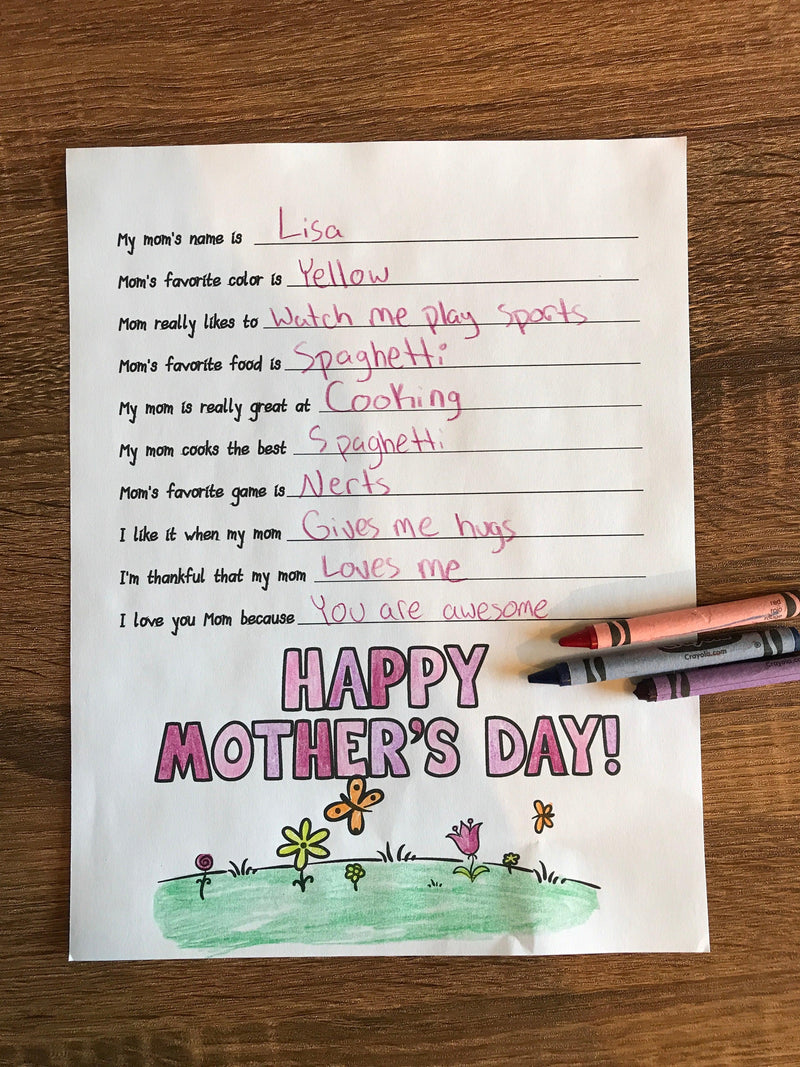 My mom's name is Lisa
Mom's favorite color is Yellow
Mom really likes to Watch me play sports
Mom's favorite food is Spaghetti
My mom is really great at Cooking
My mom cooks the best Spaghetti
Mom's favorite game is Nerts
I like it when my mom Gives me hugs
I'm thankful that my mom Loves me
I love you Mom because You are awesome
red
rojo
Crayola.com
®
Crayola
HAPPY
MOTHER'S DAY!